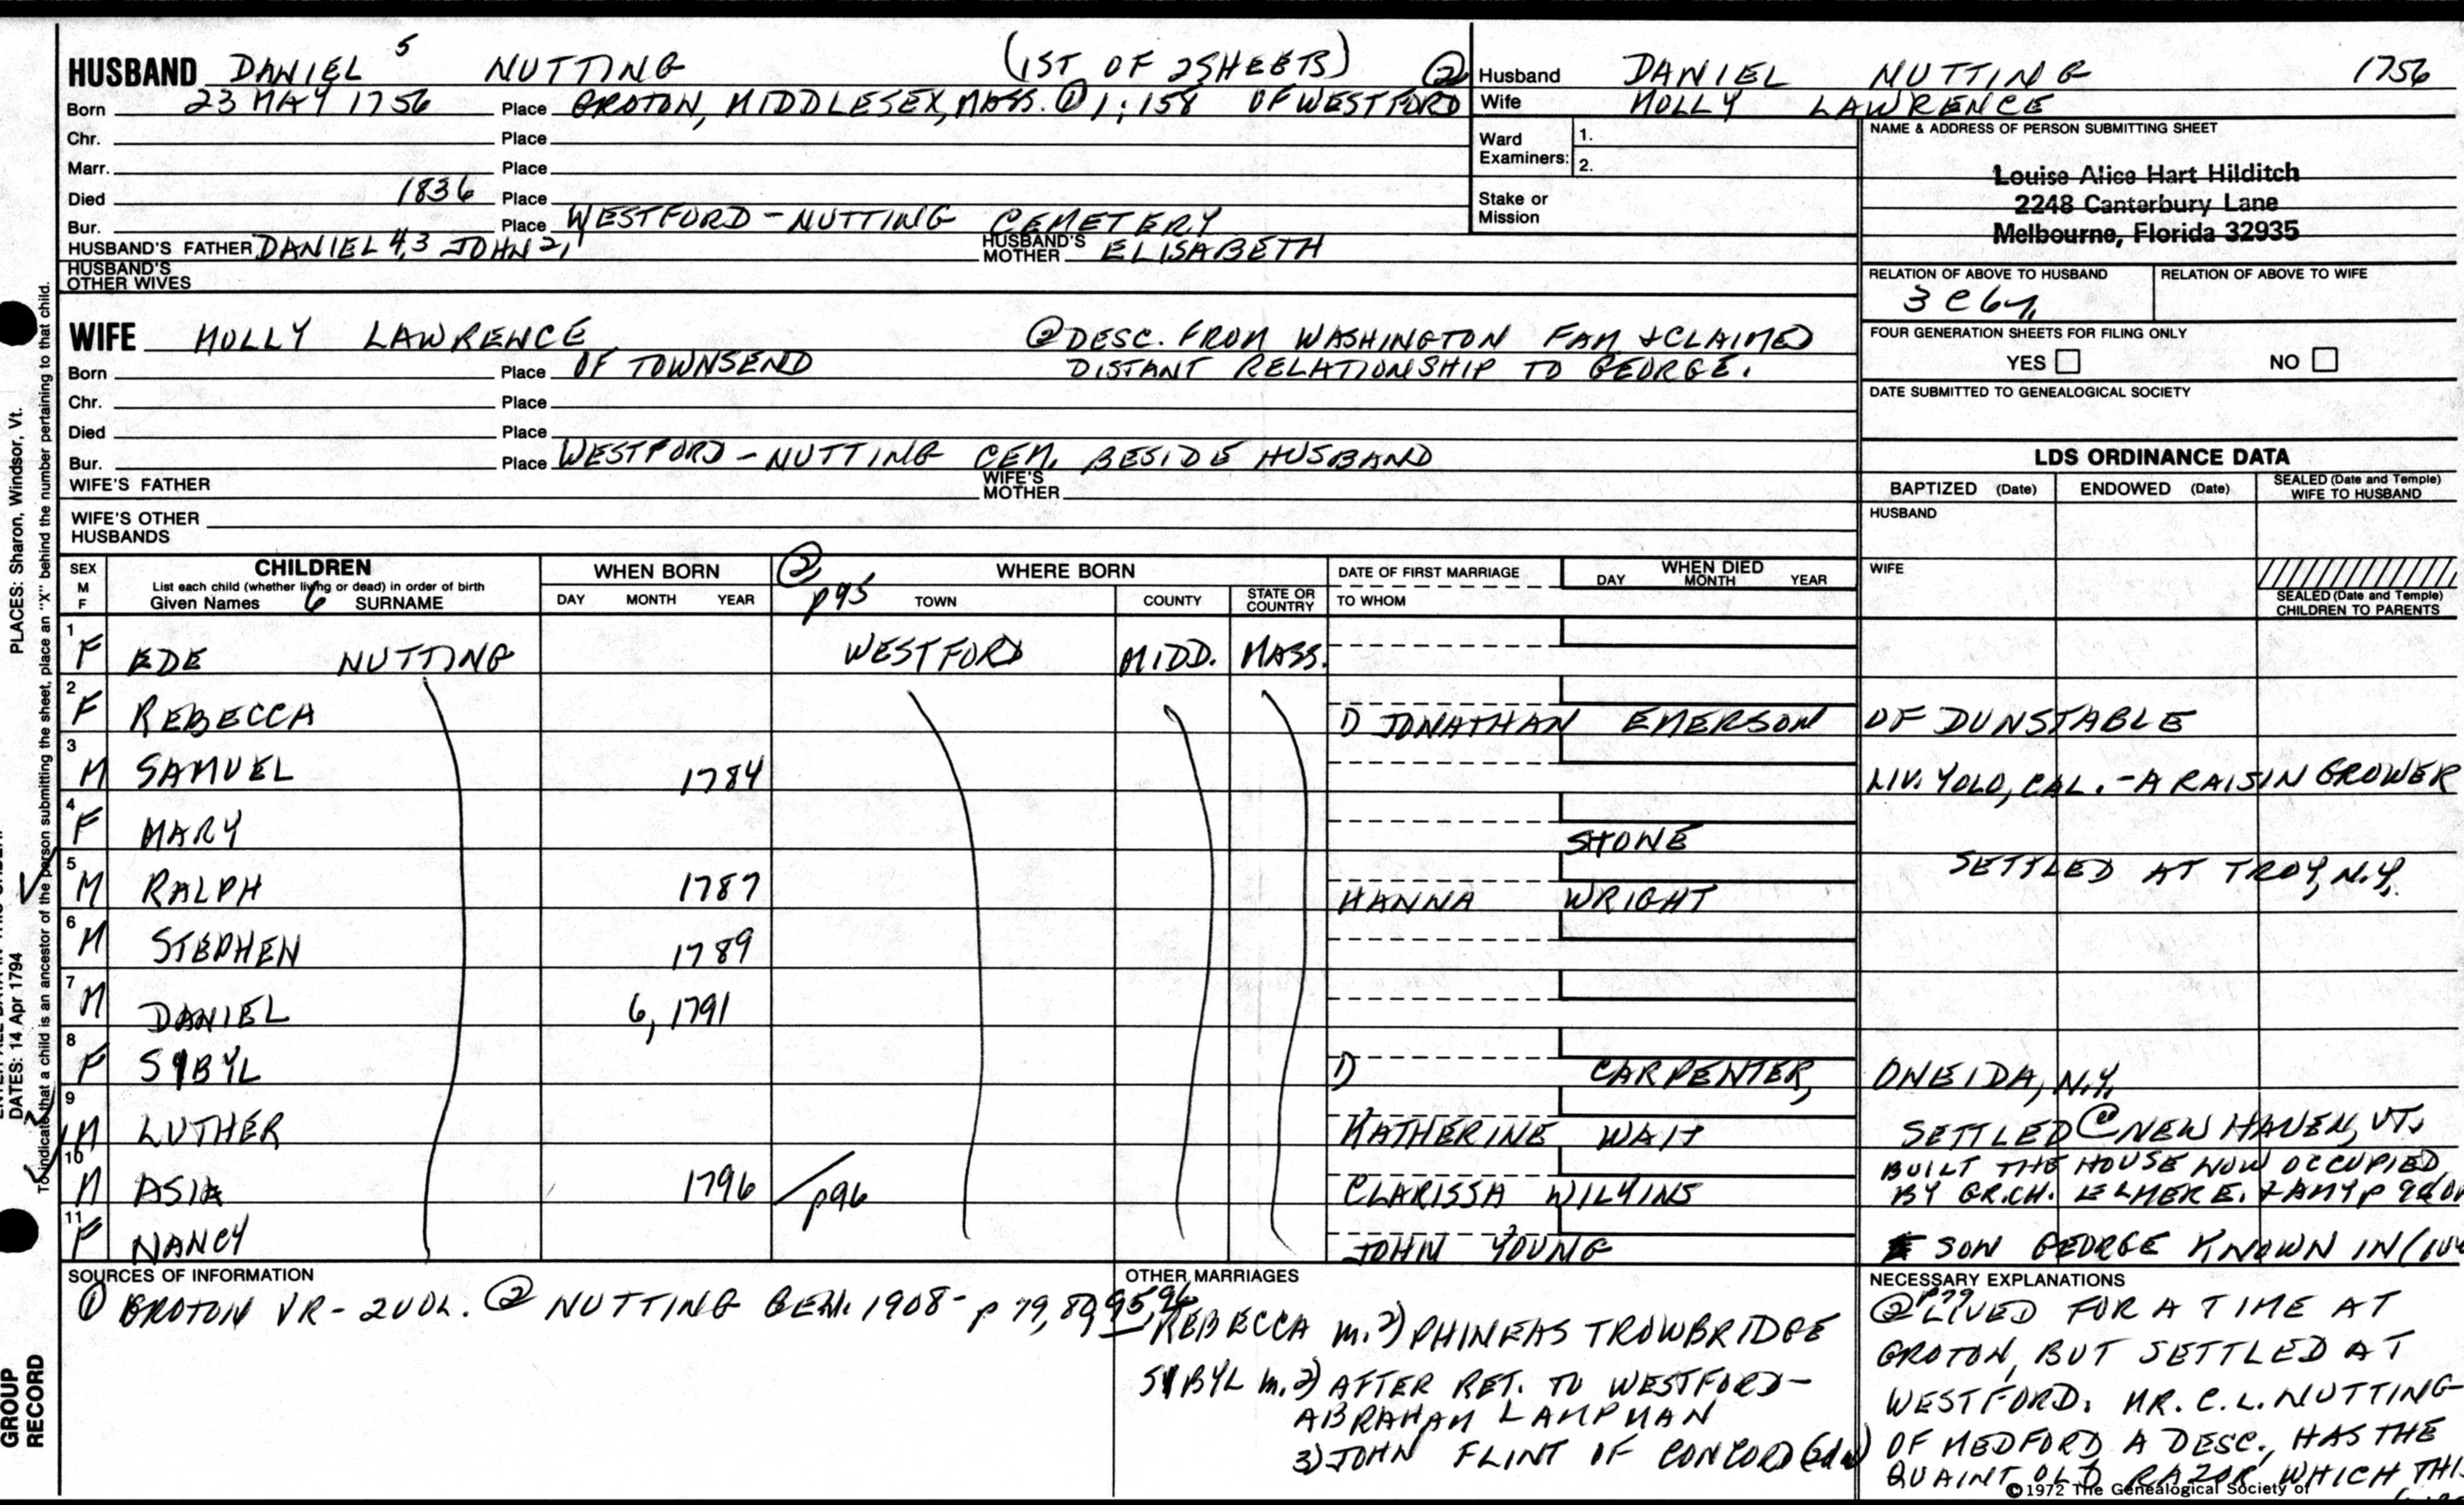 HUSBAND DANIEL 5 NUTTING (1ST OF 2 SHEETS) ②
Born 23 MAY 1756 Place GROTON, MIDDLESEX, MASS. ① 1:158 OF WESTFORD
Chr. Place
Marr. Place
Died 1836 Place
Bur. Place WESTFORD - NUTTING CEMETERY
HUSBAND'S FATHER DANIEL 4,3 JOHN 2,1 HUSBAND'S MOTHER ELISABETH
HUSBAND'S OTHER WIVES
Husband DANIEL NUTTING 1756
Wife MOLLY LAWRENCE
Ward Examiners: 1.
2.
Stake or Mission
NAME & ADDRESS OF PERSON SUBMITTING SHEET
Louise Alice Hart Hilditch
2248 Canterbury Lane
Melbourne, Florida 32935
RELATION OF ABOVE TO HUSBAND RELATION OF ABOVE TO WIFE
FOUR GENERATION SHEETS FOR FILING ONLY
YES NO
DATE SUBMITTED TO GENEALOGICAL SOCIETY
WIFE MOLLY LAWRENCE ② DESC. FROM WASHINGTON FAM + CLAIMED
Born Place OF TOWNSEND DISTANT RELATIONSHIP TO GEORGE.
Chr. Place
Died Place
Bur. Place WESTFORD - NUTTING CEM. BESIDE HUSBAND
WIFE'S FATHER WIFE'S MOTHER
WIFE'S OTHER HUSBANDS
LDS ORDINANCE DATA
BAPTIZED (Date) ENDOWED (Date) SEALED (Date and Temple) WIFE TO HUSBAND
HUSBAND
WIFE
SEALED (Date and Temple) CHILDREN TO PARENTS
SEX M F CHILDREN WHEN BORN ② WHERE BORN DATE OF FIRST MARRIAGE WHEN DIED
List each child (whether living or dead) in order of birth
Given Names 6 SURNAME DAY MONTH YEAR p95 TOWN COUNTY STATE OR COUNTRY TO WHOM DAY MONTH YEAR
1 F EDE NUTTING WESTFORD MIDD. MASS.
2 F REBECCA 1) JONATHAN EMERSON OF DUNSTABLE
3 M SAMUEL 1784 LIV. YOLO, CAL. - A RAISIN GROWER
4 F MARY STONE
5 M RALPH 1787 HANNA WRIGHT SETTLED AT TROY, N.Y.
6 M STEPHEN 1789
7 M DANIEL 6, 1791
8 F SYBYL 1) CARPENTER, ONEIDA, N.Y.
9 M LUTHER KATHERINE WAIT SETTLED @ NEW HAVEN, VT.
10 M ASIA 1796 p96 CLARISSA WILKINS BUILT THE HOUSE NOW OCCUPIED
BY GR.CH. ELMER E. + AMY
11 F NANCY JOHN YOUNG SON GEORGE KNOWN IN
SOURCES OF INFORMATION
① GROTON VR - 2 VOL. ② NUTTING GEN. 1908 - p 79, 89, 95, 96
OTHER MARRIAGES
REBECCA m. 2) PHINEAS TROWBRIDGE
SYBYL m. 2) AFTER RET. TO WESTFORD -
ABRAHAM LAMPMAN
3) JOHN FLINT OF CONCORD
NECESSARY EXPLANATIONS
② p79 LIVED FOR A TIME AT
GROTON, BUT SETTLED AT
WESTFORD. MR. C. L. NUTTING
OF MEDFORD A DESC., HAS THE
QUAINT OLD RAZOR WHICH THIS
©1972 The Genealogical Society of
PLACES: Sharon, Windsor, Vt.
DATES: 14 Apr 1794
To indicate that a child is an ancestor of the person submitting the sheet, place an "X" behind the number pertaining to that child.
GROUP
RECORD